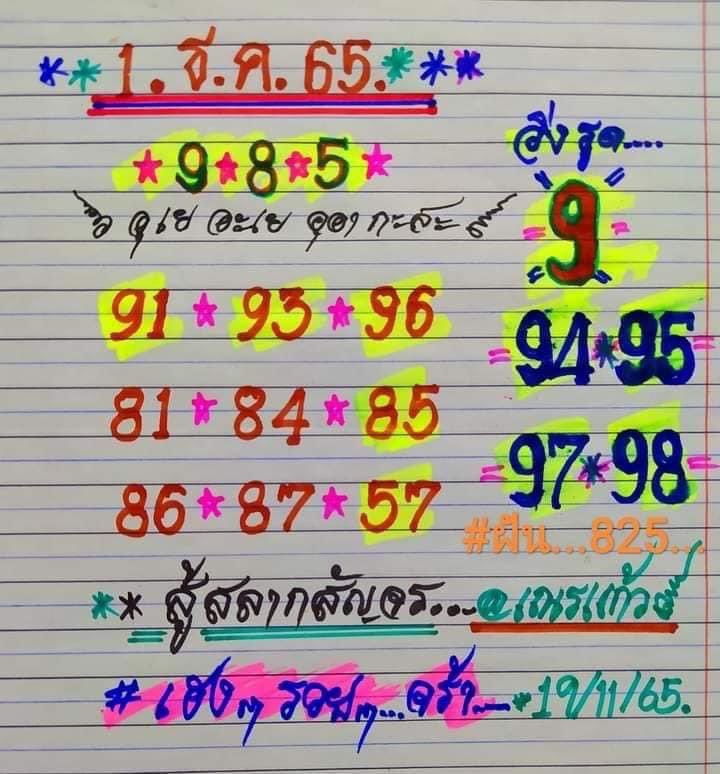 ** 1. ธ. ค. 65. ***
* 9 * 8 * 5 *
วิ่ง รูด....
9
อุเย อะเย
91 * 93 * 96
= 94 * 95 =
81 * 84 * 85
= 97 * 98 =
86 * 87 * 57
#ฝัน...825...
** สู้สลากสัญจร...@เณรแก้ว
# เฮงๆ รวยๆ...จร้า... *19/11/65.